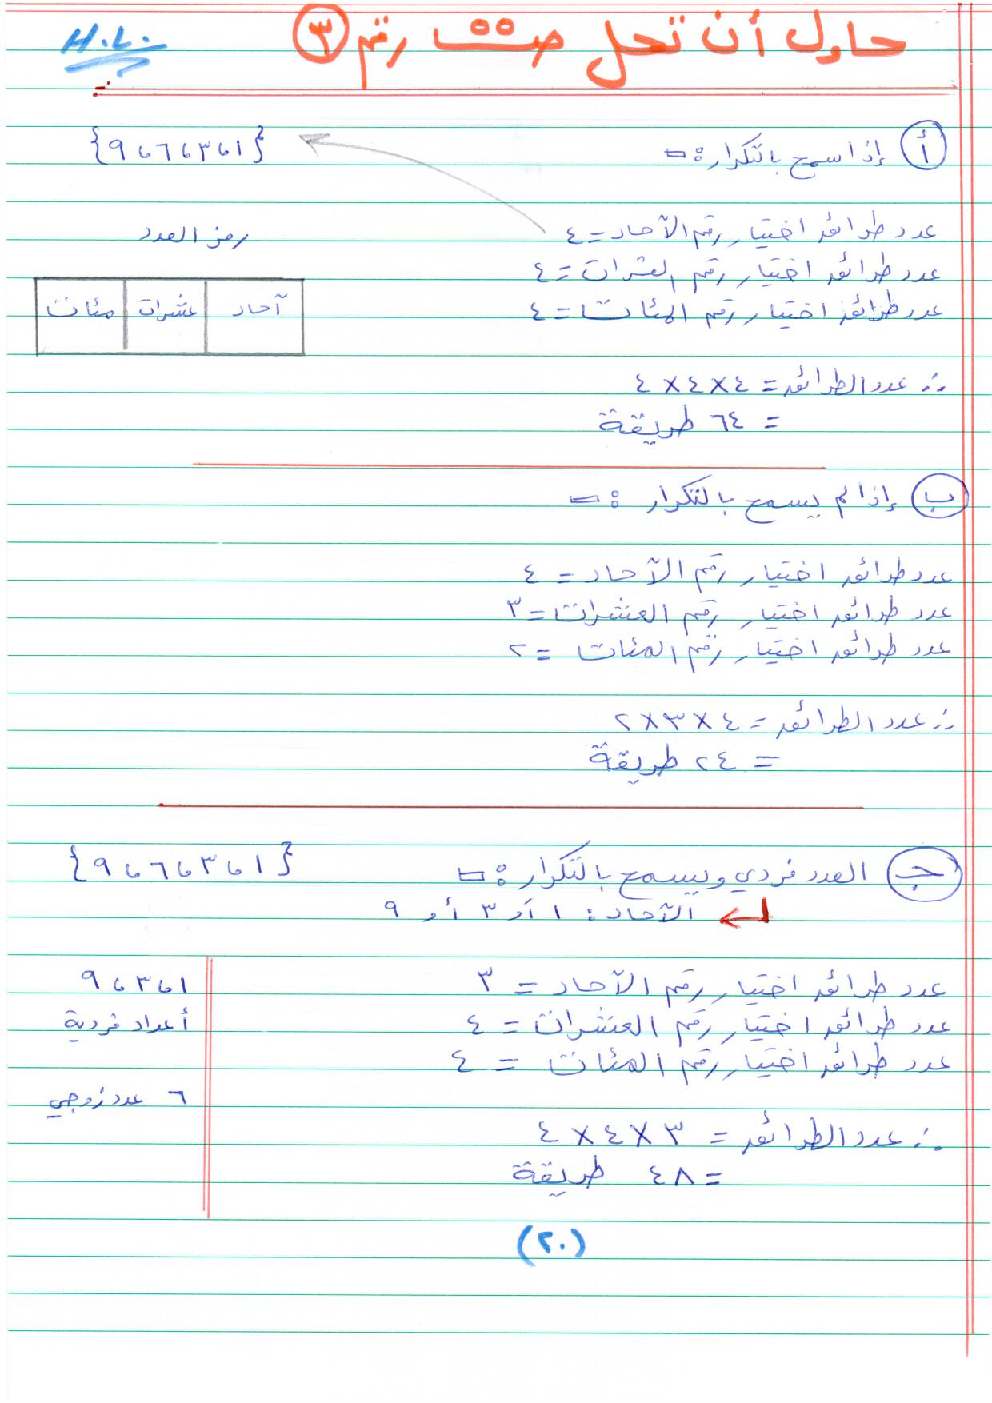 حاول أن تحل ص ٥٥ رقم ٣
H.L.
أ إذا سمح بالتكرار :-
{١ ، ٣ ، ٦ ، ٩}
عدد طرائق اختيار رقم الآحاد = ٤
عدد طرائق اختيار رقم العشرات = ٤
عدد طرائق اختيار رقم المئات = ٤
رمز العدد
آحاد عشرات مئات
∴ عدد الطرائق = ٤ × ٤ × ٤
= ٦٤ طريقة
ب إذا لم يسمح بالتكرار :-
عدد طرائق اختيار رقم الآحاد = ٤
عدد طرائق اختيار رقم العشرات = ٣
عدد طرائق اختيار رقم المئات = ٢
∴ عدد الطرائق = ٤ × ٣ × ٢
= ٢٤ طريقة
ج العدد فردي ويسمح بالتكرار :-
{١ ، ٣ ، ٦ ، ٩}
الآحاد : ١ أو ٣ أو ٩
عدد طرائق اختيار رقم الآحاد = ٣
عدد طرائق اختيار رقم العشرات = ٤
عدد طرائق اختيار رقم المئات = ٤
∴ عدد الطرائق = ٣ × ٤ × ٤
= ٤٨ طريقة
١ ، ٣ ، ٩
أعداد فردية
٦ عدد زوجي
(٢٠)